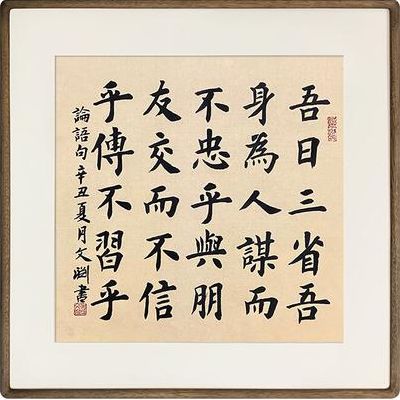 吾日三省吾
身為人謀而
不忠乎與朋
友交而不信
乎傳不習乎
論語句辛丑夏月文書